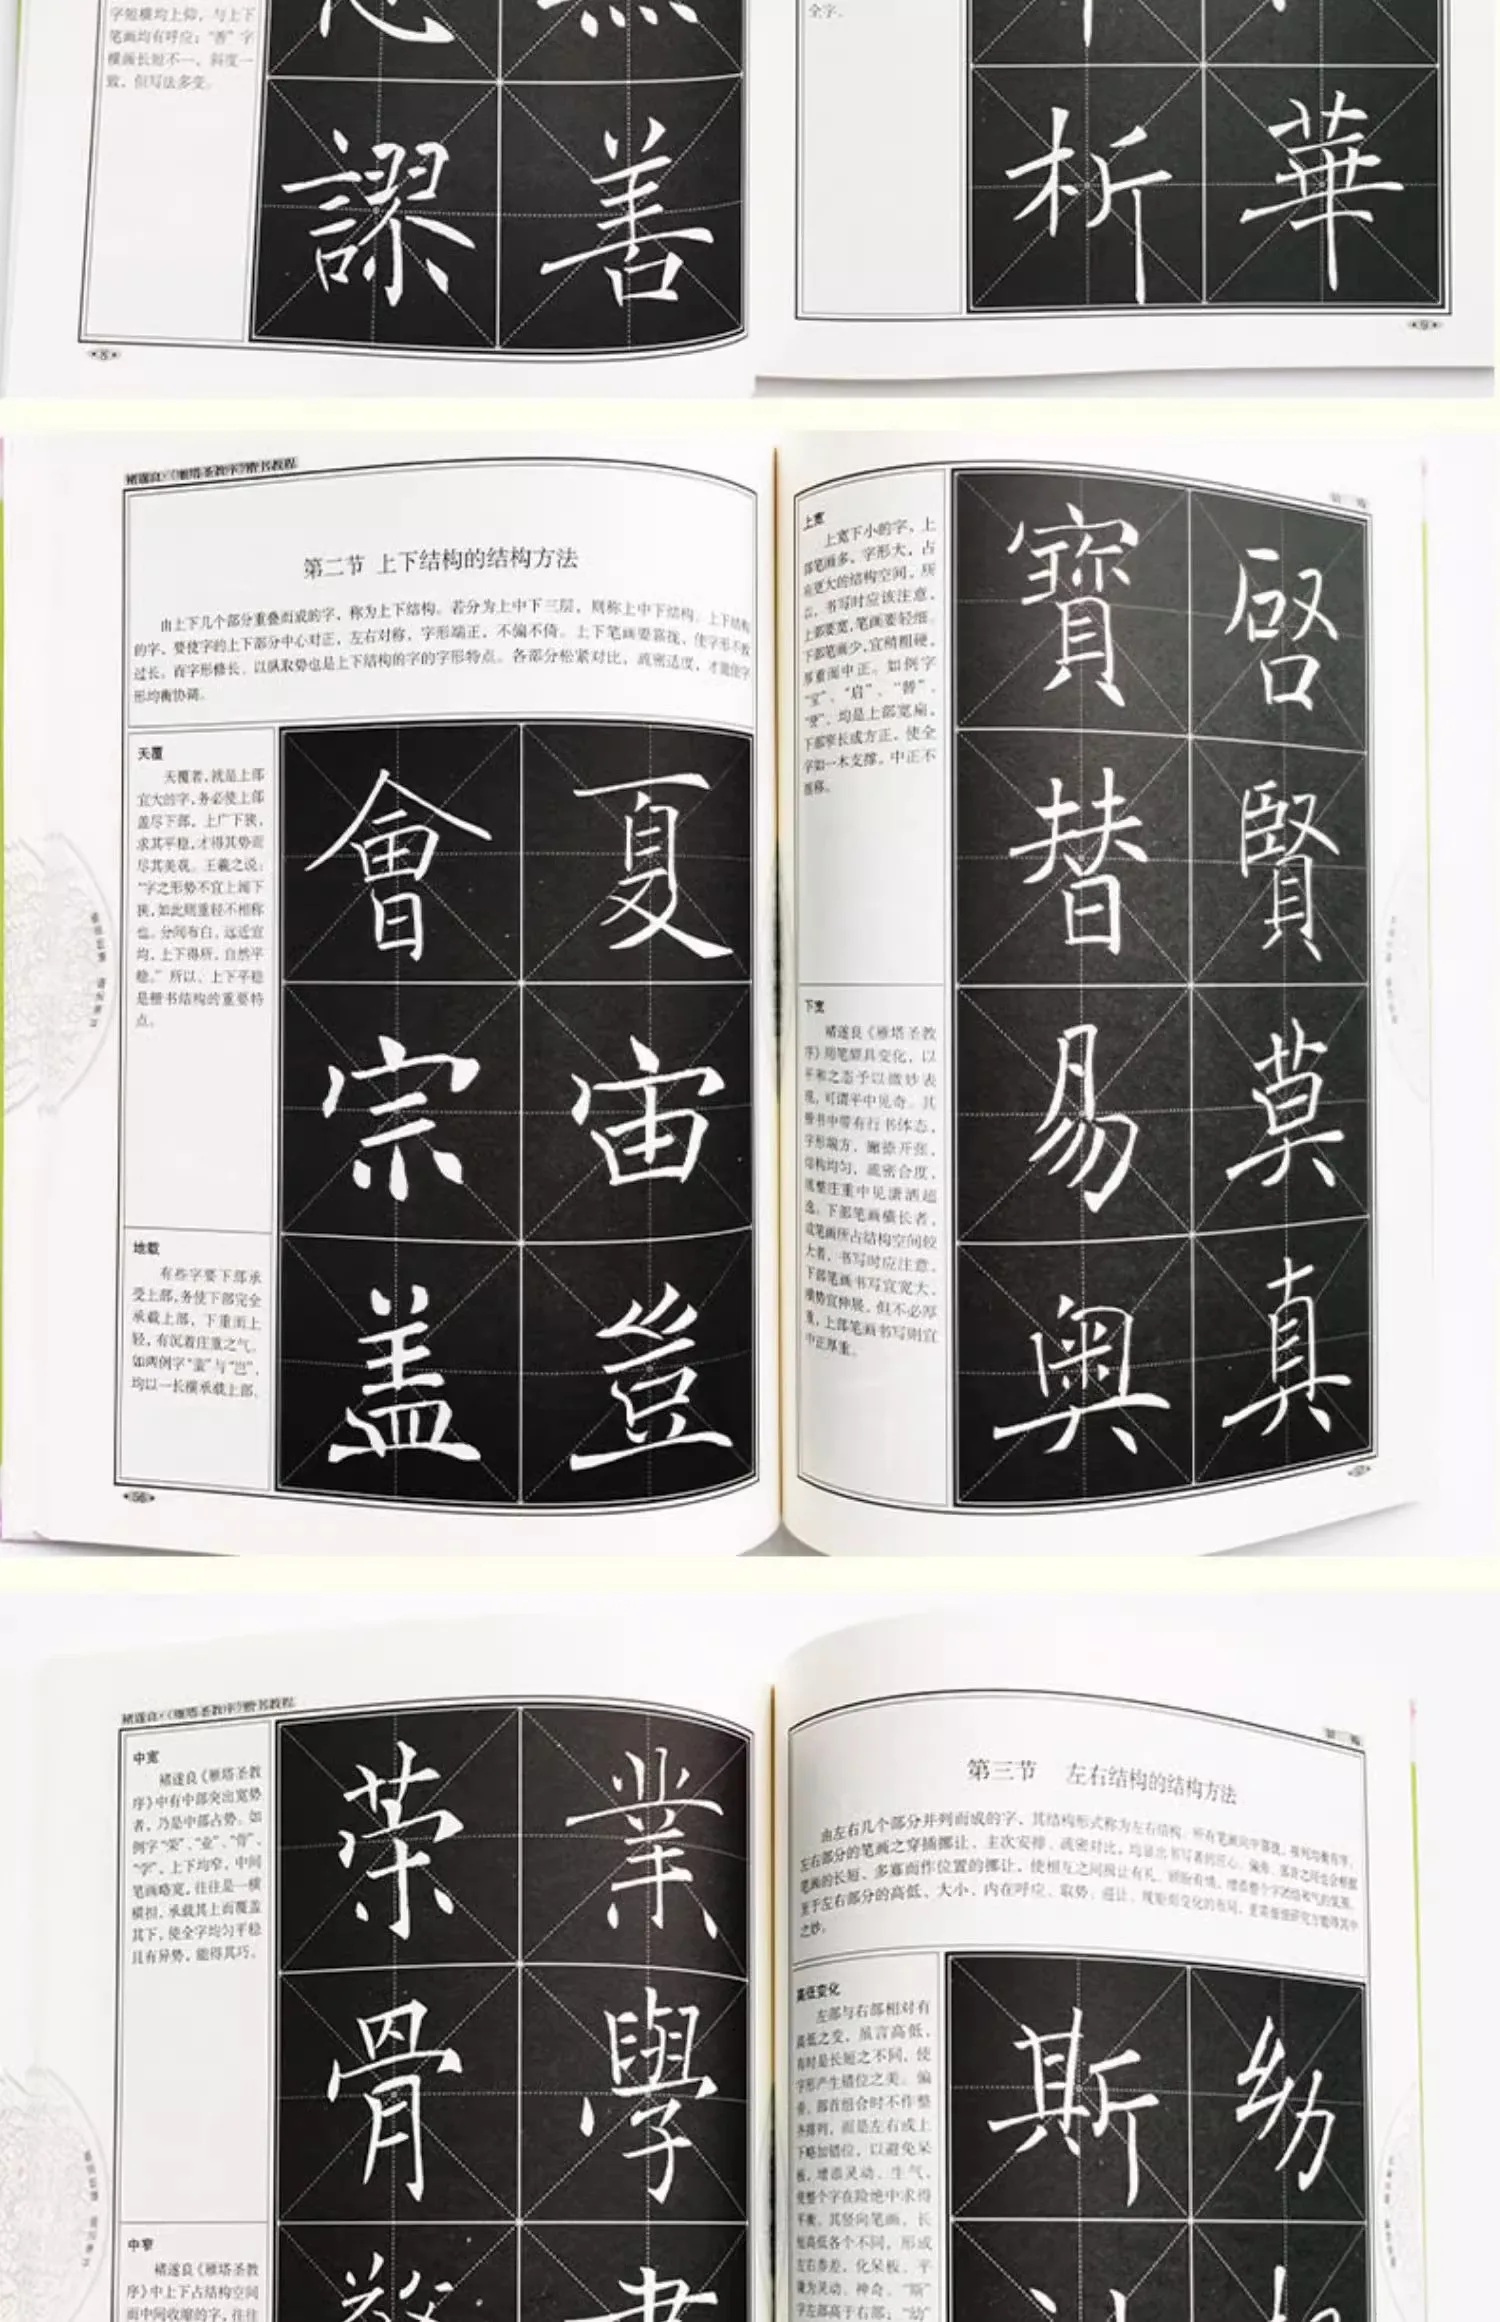 字短横均上仰，与上下
笔画均有呼应；“善”字
横画长短不一，斜度一
致，但写法多变。
謬 善
8
全字。
析 華
9
褚遂良·《雁塔圣教序》楷书教程
第二节 上下结构的结构方法
由上下几个部分重叠而成的字，称为上下结构。若分为上中下三层，则称上中下结构。上下结构
的字，要使字的上下部分中心对正，左右对称，字形端正，不偏不倚。上下笔画要靠拢，使字形不致
过长。而字形修长、以纵取势也是上下结构的字的字形特点。各部分松紧对比，疏密适度，才能使字
形均衡协调。
天覆
天覆者，就是上部
宜大的字，务必使上部
盖尽下部，上广下狭，
求其平稳，才得其势而
尽其美观。王羲之说：
“字之形势不宜上阔下
狭，如此则重轻不相称
也。分间布白，远近宜
均，上下得所，自然平
稳。”所以，上下平稳
是楷书结构的重要特
点。
會 夏
宗 宙
地载
有些字要下部承
受上部，务使下部完全
承载上部，下重而上
轻，有沉着庄重之气。
如两例字“盖”与“岂”，
均以一长横承载上部。
盖 豈
56
上宽
上宽下小的字，上
部笔画多，字形大，占
有更大的结构空间，所
以，书写时应该注意，
上部要宽，笔画要轻细。
下部笔画少，宜稍粗硬，
厚重而中正。如例字
“宝”、“启”、“替”、
“贤”，均是上部宽扁，
下部窄长或方正，使全
字如一木支撑，中正不
寶 啓
替 賢
下宽
褚遂良《雁塔圣教
序》用笔颇具变化，以
平和之态予以微妙表
现，可谓平中见奇。其
楷书中带有行书体态，
字形端方，撇捺开张，
结构均匀，疏密合度，
规整庄重中见潇洒超
逸。下部笔画横长者，
或笔画所占结构空间较
大者，书写时应注意，
下部笔画书写宜宽大，
横势宜伸展，但不必厚
重，上部笔画书写则宜
中正厚重。
易 莫
奥 真
褚遂良·《雁塔圣教序》楷书教程
中宽
褚遂良《雁塔圣教
序》中有中部突出宽势
者，乃是中部占势。如
例字“荣”、“业”、“骨”、
“学”，上下均窄，中间
笔画略宽，往往是一横
横担，承载其上而覆盖
其下，使全字均匀平稳
且有异势，能得其巧。
荣 業
骨 學
中窄
褚遂良《雁塔圣教
序》中上下占结构空间
而中间收缩的字，往往
第三节 左右结构的结构方法
由左右几个部分并列而成的字，其结构形式称为左右结构。
左右部分的笔画之穿插挪让、主次安排、疏密对比，
笔画的长短、多寡而作位置的挪让，使相互之间
至于左右部分的高低、大小、内在呼应、取势、避让，
之妙。
高低变化
左部与右部相对有
高低之变，虽言高低，
有时是长短之不同，使
字形产生错位之美。偏
旁、部首组合时不作整
齐排列，而是左右或上
下略加错位，以避免呆
板，增添灵动、生气，
使整个字在险绝中求得
平衡。其竖向笔画，长
短高低各个不同，形成
左右参差，化呆板、平
庸为灵动、神奇。“斯”
字左部高于右部；“幼”
斯 幼